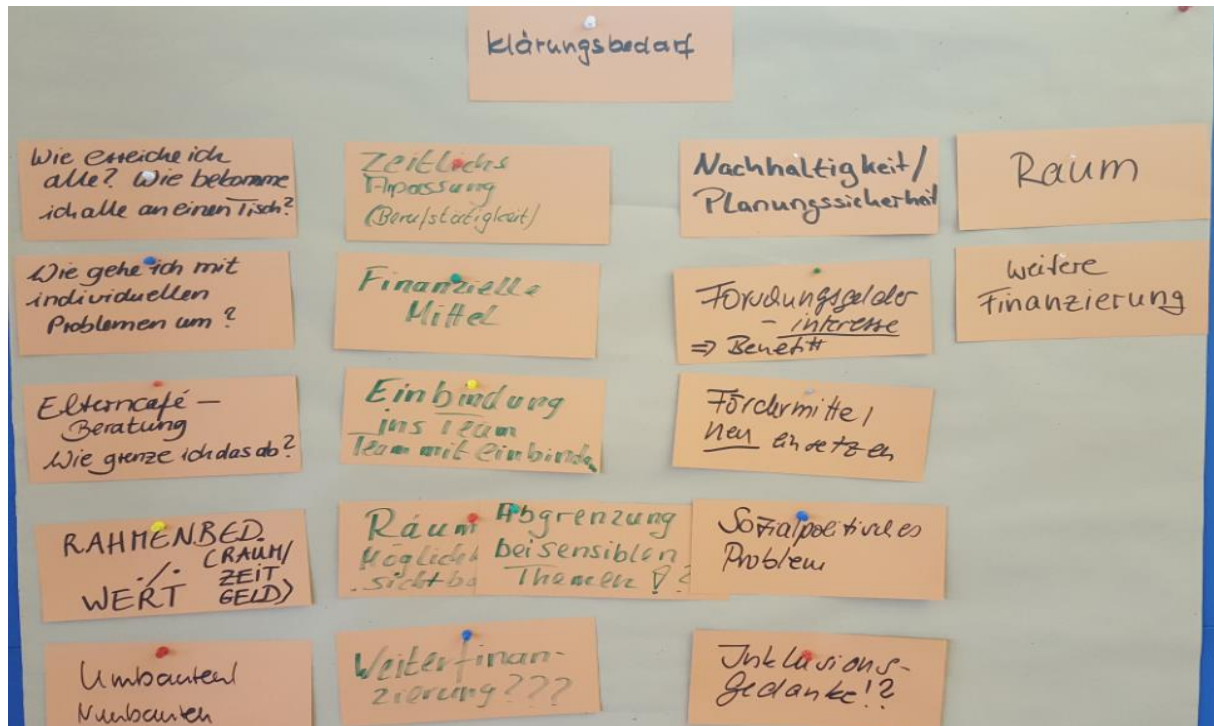 klärungsbedarf
Wie erreiche ich
alle? Wie bekomme
ich alle an einen Tisch?
Wie gehe ich mit
individuellen
Problemen um?
Elterncafé –
Beratung
Wie grenze ich das ab?
RAHMENBED.
./. (RAUM/
ZEIT
WERT GELD)
Umbauten/
Neubauten
Zeitliche
Anpassung
(Berufstätigkeit)
Finanzielle
Mittel
Einbindung
ins Team
Team mit einbinden
Räum
Möglich
sichtba
Abgrenzung
bei sensiblen
Themen !?
Weiterfinan-
zierung???
Nachhaltigkeit/
Planungssicherheit
Förderungsgelder
- interesse
⇒ Benefit
Fördermittel
neu einsetzen
Sozialpolitisches
Problem
Inklusions-
gedanke!?
Raum
weitere
Finanzierung